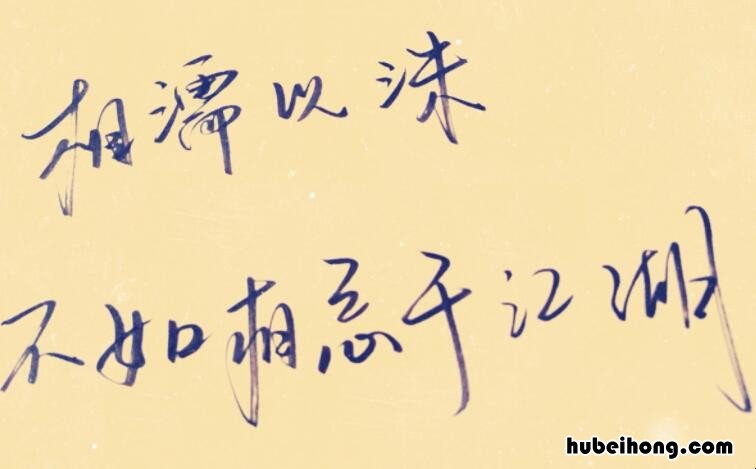 相濡以沫
不如相忘于江湖
hubeihong.com